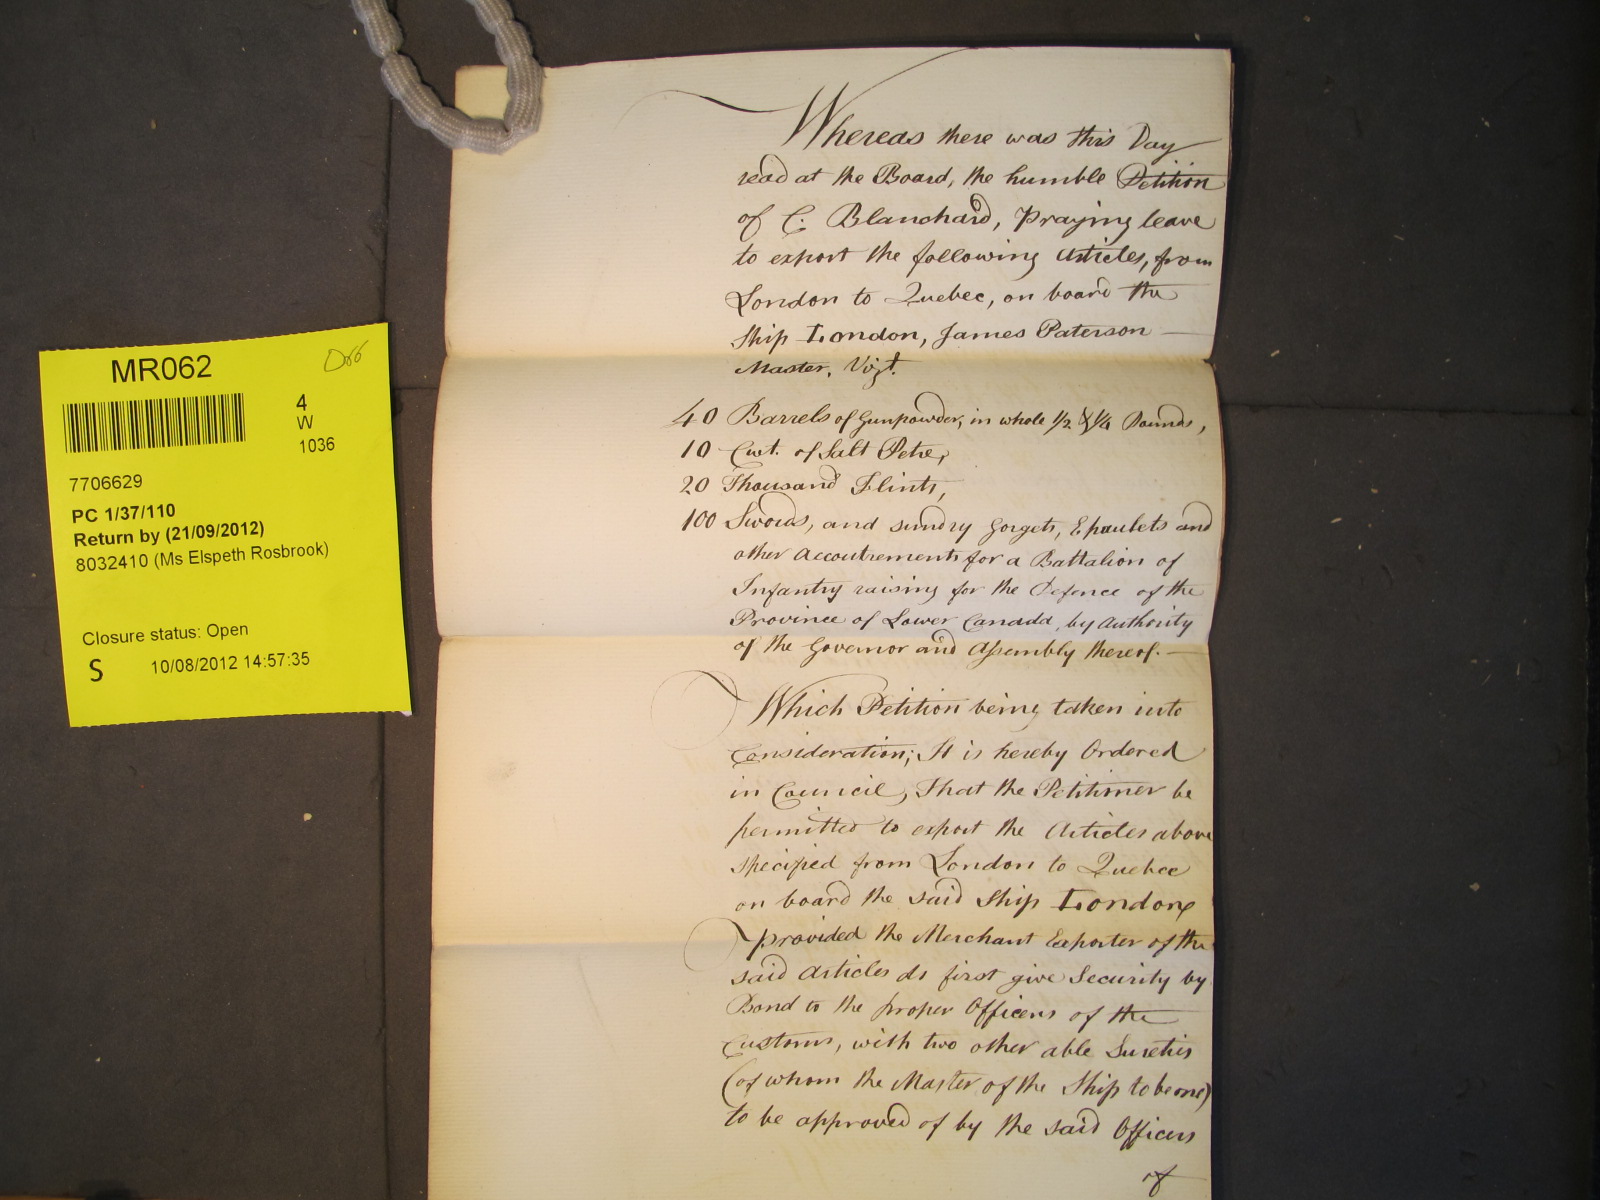 MR062
4
W
1036
7706629
PC 1/37/110
Return by (21/09/2012)
8032410 (Ms Elspeth Rosbrook)
Closure status: Open
S 10/08/2012 14:57:35
Whereas there was this Day
read at the Board, the humble Petition
of C. Blanchard, Praying leave
to export the following Articles, from
London to Quebec, on board the
Ship London, James Paterson
Master, Vizt.
40 Barrels of Gunpowder, in whole 1/2 & 1/4 Pounds,
10 Cwt. of Salt Petre,
20 Thousand Flints,
100 Swords, and sundry Gorgets, Epaulets and
other Accoutrements for a Battalion of
Infantry raising for the Defence of the
Province of Lower Canada, by Authority
of the Governor and Assembly thereof.
Which Petition being taken into
Consideration; It is hereby Ordered
in Council, That the Petitioner be
permitted to export the Articles above
specified from London to Quebec
on board the said Ship London
provided the Merchant Exporter of the
said Articles do first give Security by
Bond to the proper Officers of the
Customs, with two other able Sureties
(of whom the Master of the Ship to be one)
to be approved of by the said Officers
of